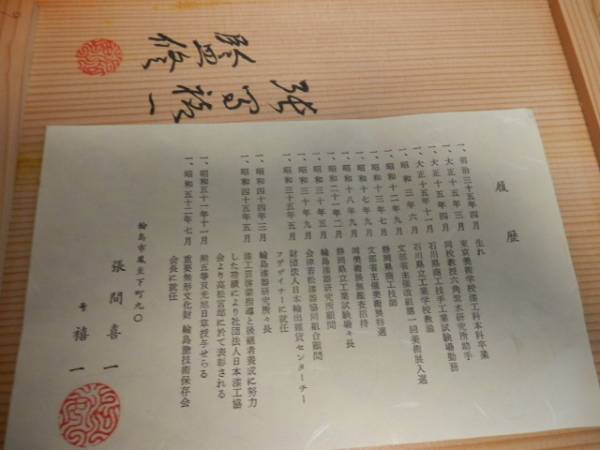 張間禧一
監修
履歴
一、明治三十五年四月 生れ
一、大正十五年三月 東京美術学校漆工科本科卒業
一、大正十五年四月 同校教授六角紫水研究所助手
一、大正十五年十一月 石川県商工技手工業試験場勤務
一、昭和三年六月 石川県立工業学校教諭
一、昭和十二年九月 文部省主催改組第一回美術展入選
一、昭和十三年七月 静岡県商工技師
一、昭和十七年九月 文部省主催美術展特選
一、昭和十八年九月 同美術展無鑑査招待
一、昭和二十一年二月 静岡県立工業試験場々長
一、昭和三十年五月 輪島漆器研究所顧問
一、昭和三十年九月 会津若松漆器協同組合顧問
一、昭和三十五年五月 財団法人日本輸出雑貨センターチー
フデザイナーに就任
一、昭和四十四年三月 輪島漆器研究所々長
一、昭和四十五年五月 漆工芸啓蒙指導と後継者養成に努力
した功績により社団法人日本漆工協
会より高松宮邸に於て表彰される
一、昭和五十一年十一月 勲五等双光旭日章授与せらる
一、昭和五十二年七月 重要無形文化財 輪島塗技術保存会
会長に就任
輪島市鳳至下町九〇
張間喜一
号 禧一